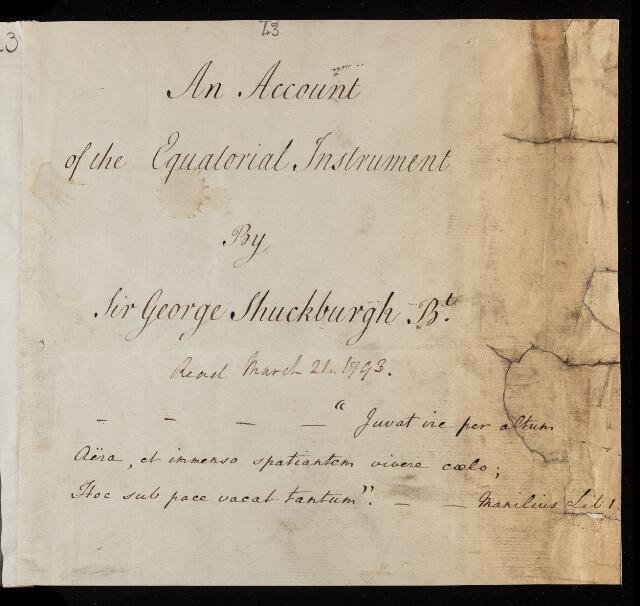 43
An Account
of the Equatorial Instrument
By
Sir George Shuckburgh B.t
Read March 21. 1793.
– – – – "Juvat ire per altum
Aëra, et immenso spatiantem vivere cœlo;
Hoc sub pace vacat tantum". – – Manilius Lib 1.